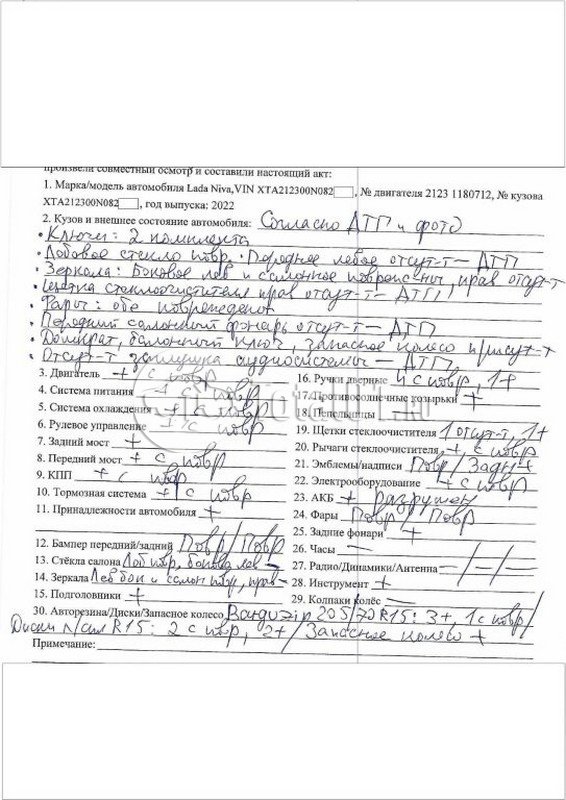 произвели совместный осмотр и составили настоящий акт:
1. Марка/модель автомобиля Lada Niva,VIN XTA212300N082, № двигателя 2123 1180712, № кузова
XTA212300N082, год выпуска: 2022
2. Кузов и внешнее состояние автомобиля: Согласно ДТП и фото
• Ключи: 2 комплекта
• Лобовое стекло повр. • Переднее левое отсут-т – ДТП
• Зеркала: Боковое лев и салонное поврежены, прав отсут-т
• Щетка стеклоочистителя прав отсут-т – ДТП
• Фары: обе повреждены
• Передний салонный фонарь отсут-т – ДТП
• Домкрат, балонный ключ, запасное колесо присут-т
• Отсут-т заглушка аудиосистемы – ДТП
3. Двигатель + с повр
4. Система питания + с повр
5. Система охлаждения + с повр
6. Рулевое управление + с повр
7. Задний мост +
8. Передний мост + с повр
9. КПП + с повр
10. Тормозная система + с повр
11. Принадлежности автомобиля +
12. Бампер передний/задний Повр/Повр
13. Стёкла салона Лоб повр, боковое лев –
14. Зеркала Лев бок и салон повр, прав –
15. Подголовники +
16. Ручки дверные 4 с повр, 1+
17. Противосолнечные козырьки +
18. Пепельницы
19. Щетки стеклоочистителя 1 отсут-т, 1+
20. Рычаги стеклоочистителя +, с повр
21. Эмблемы/надписи Повр/Задн +
22. Электрооборудование + с повр
23. АКБ + разрушен
24. Фары Повр/Повр
25. Задние фонари +
26. Часы –
27. Радио/Динамики/Антенна –/–/–
28. Инструмент +
29. Колпаки колёс –
30. Авторезина/Диски/Запасное колесо 205/70 R15: 3+, 1 с повр/
Диски R15: 2 с повр, 2+/ Запасное колесо +
Примечание: